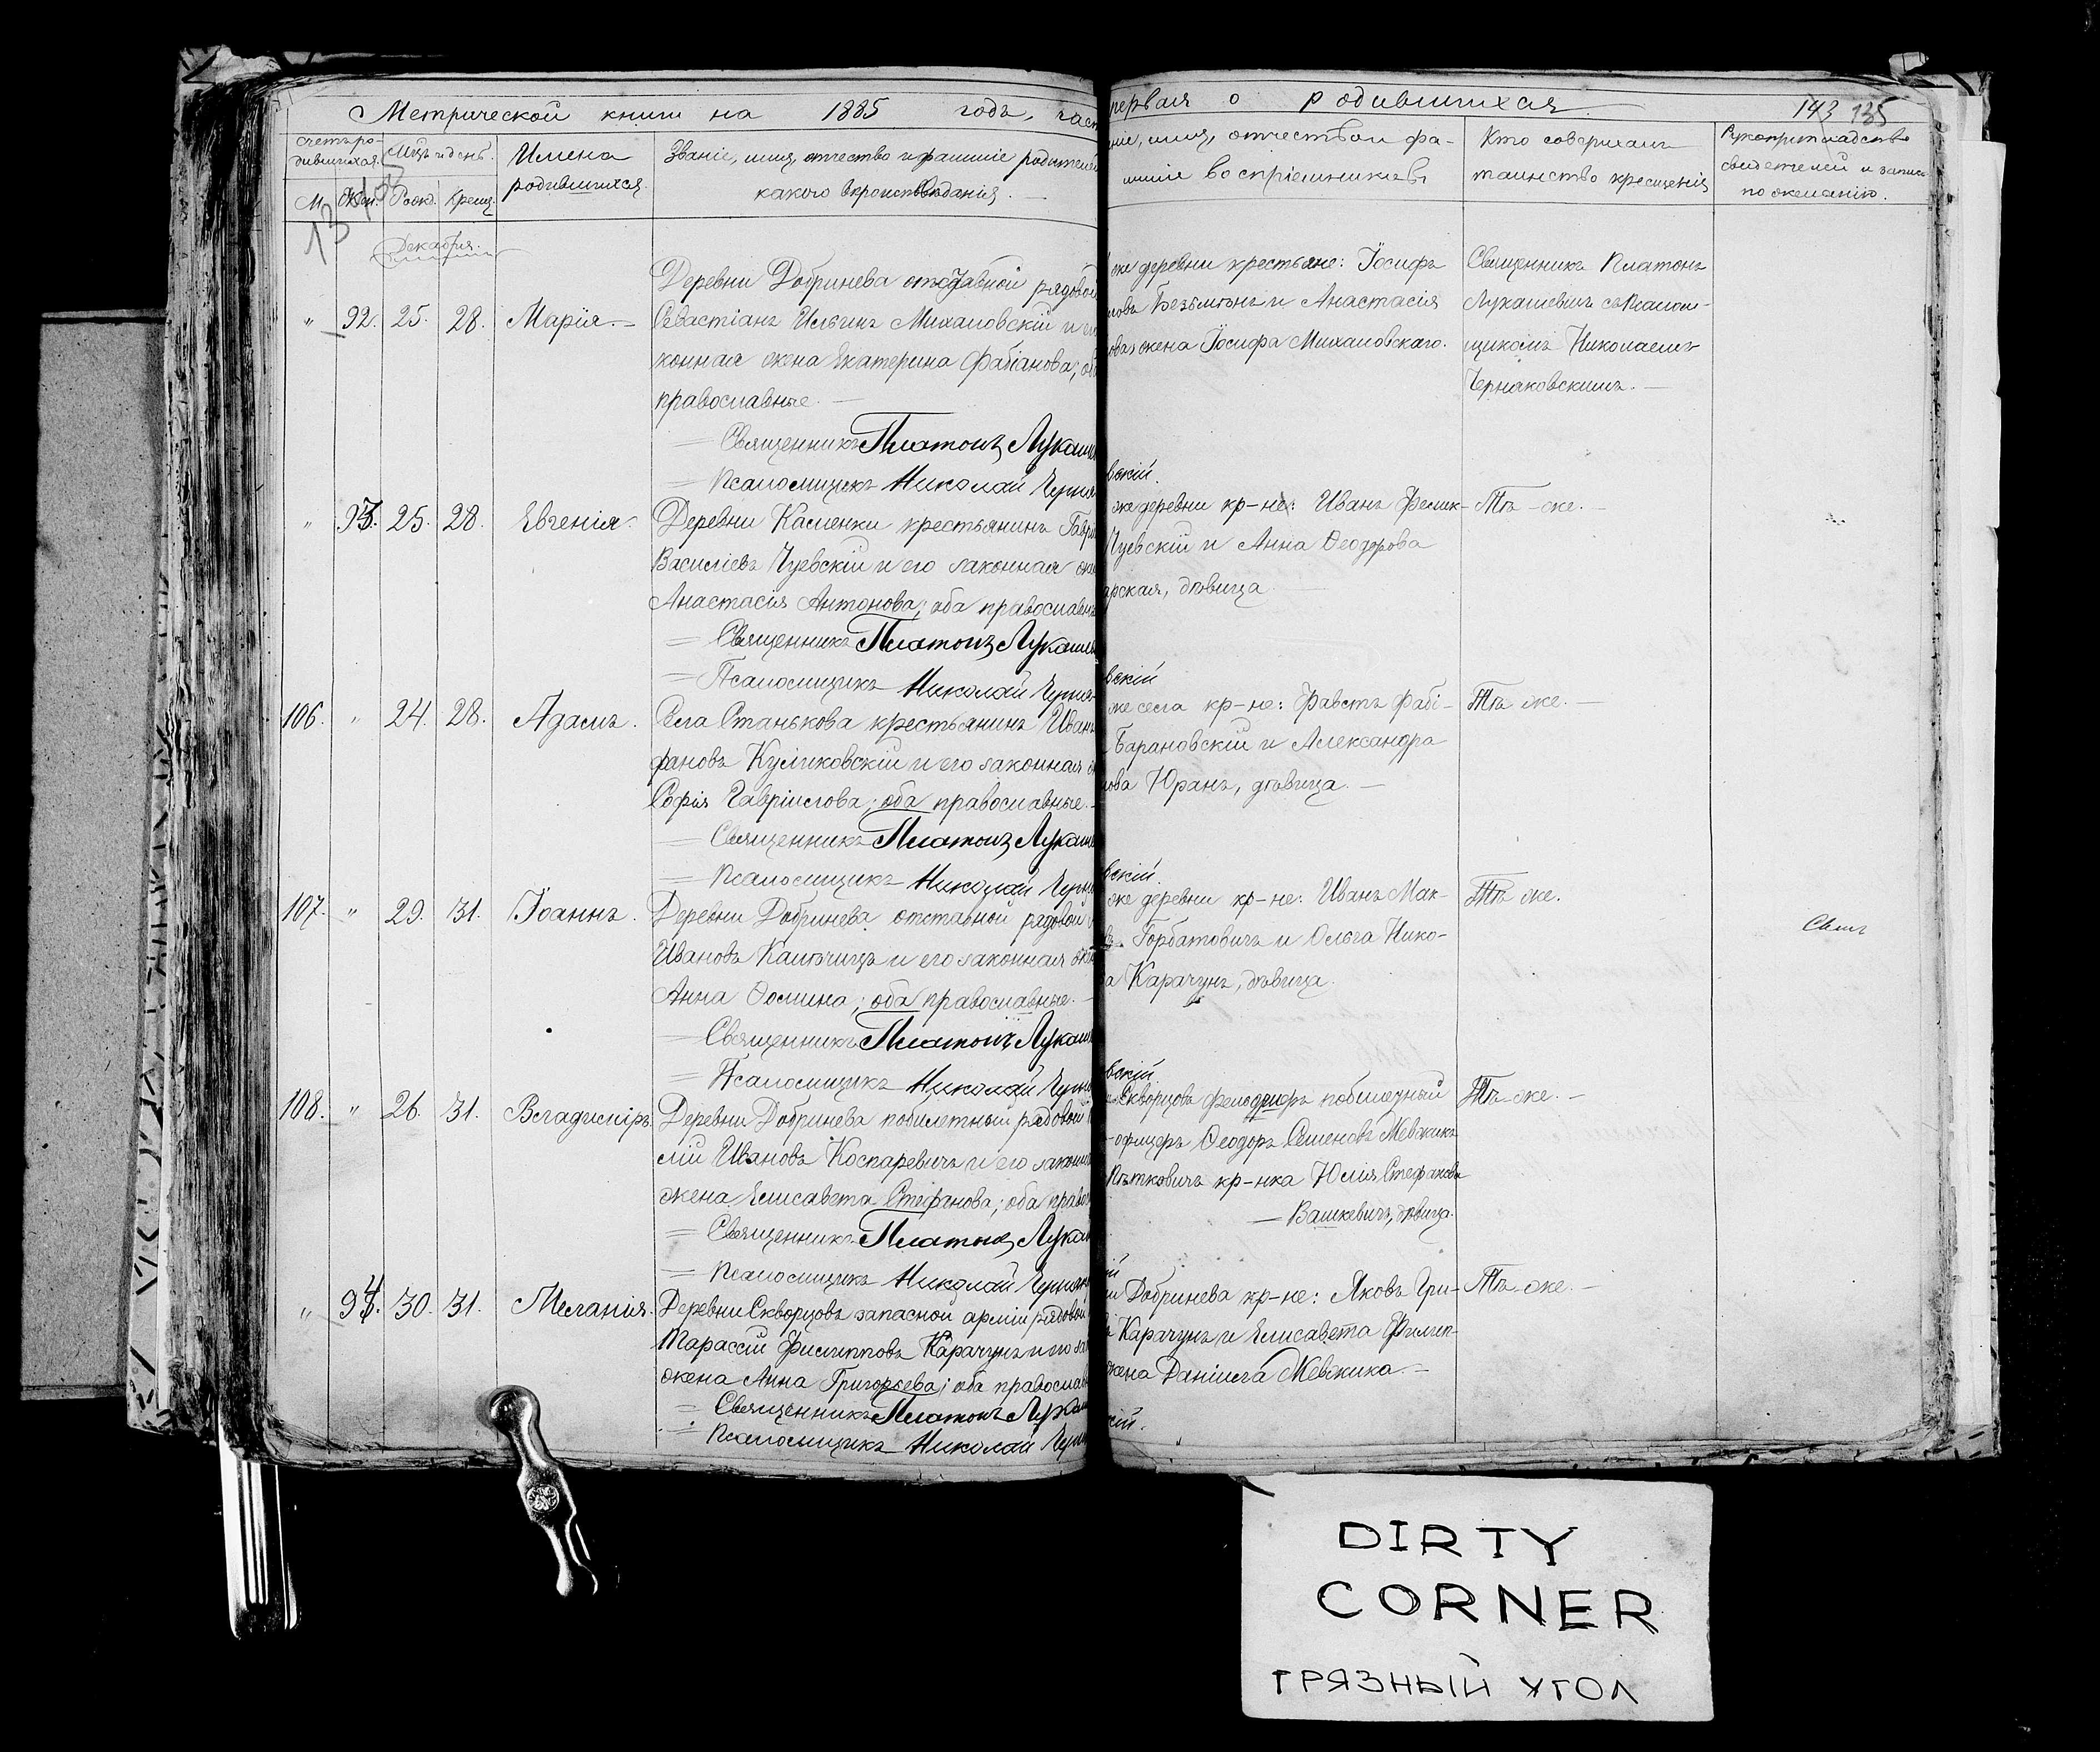 Метрической книги на 1885 годъ, част
первая о родившихся
143 135
Счетъ ро-
дившихся.
Мцъ и день.
Имена
родившихся.
Званіе, имя, отчество и фамиліе родителей
какого вѣроисповѣданія.
ніе, имя, отчество и фа-
миліе воспріемниковъ
Кто совершалъ
таинство крещенія
Рукоприкладство
свидетелей и запись
по желанію.
М. Жен. Рожд. Крещ.
Декабря.
" 92. 25. 28. Марія.
Деревни Добринева отставной рядовой
Севастіанъ Ильинъ Михаловскій и ег
конная жена Екатерина Фабіанова; об
православные.
Священникъ Платонъ Лукаш
Псаломщикъ Николай Черня
же деревни крестьяне: Іосифъ
новъ Безъмѣнъ и Анастасія
ова, жена Іосифа Михаловскаго.
Священникъ Платонъ
Лукашевичъ съ Псалом-
щикомъ Николаемъ
Черняковскимъ.
вскій.
" 93. 25. 28. Евгенія.
Деревни Касменки крестьянинъ Гаврі
Василіевъ Чуевскій и его законная же
Анастасія Антонова; оба православн
Священникъ Платонъ Лукаше
Псаломщикъ Николай Черня
же деревни кр-не: Иванъ Фелик-
Чуевскій и Анна Ѳеодорова
арская, дѣвица
Тѣ-же.
вскій
106. " 24. 28. Адамъ.
Села Станькова крестьянинъ Иванъ
фановъ Куликовскій и его законная ж
Софія Гавріилова; оба православные.
Священникъ Платонъ Лукаше
Псаломщикъ Николай Черня
же села кр-не: Фавстъ Фабі-
Барановскій и Александра
нова Юранъ, дѣвица.
Тѣ же.
вскій.
107. " 29. 31. Іоаннъ.
Деревни Добринева отставной рядовой
Ивановъ Калѣчицъ и его законная же
Анна Ѳомина; оба православные.
Священникъ Платонъ Лукаш
Псаломщикъ Николай Черня
же деревни кр-не: Иванъ Мак-
Горбатовичъ и Ольга Нико-
ва Карачунъ, дѣвица.
Тѣ же.
вскій
108. " 26. 31. Владиміръ.
Деревни Добринева побилетный рядовой
лій Ивановъ Коспаревичъ и его законн
жена Елисавета Стефанова; оба правос
Священникъ Платонъ Лука
Псаломщикъ Николай Черняк
Скворцовъ фельдшеръ побилетный
офицеръ Ѳеодоръ Семеновъ Мевжикъ
Пѣтковичъ кр-нка Юлія Стефанова
Вашкевичъ, дѣвица.
Тѣ-же.
ій
" 94. 30. 31. Меланія.
Деревни Скворцовъ запасной арміи рядовой
Тарассій Филипповъ Карачунъ и его за
жена Анна Григорьева; оба православ
Священникъ Платонъ Лукаш
Псаломщикъ Николай Черн
Добринева кр-не: Яковъ Гри-
Карачунъ и Елисавета Филип-
жена Даніила Мевжика.
Тѣ-же.
скій.
DIRTY
CORNER
ГРЯЗНЫЙ УГОЛ